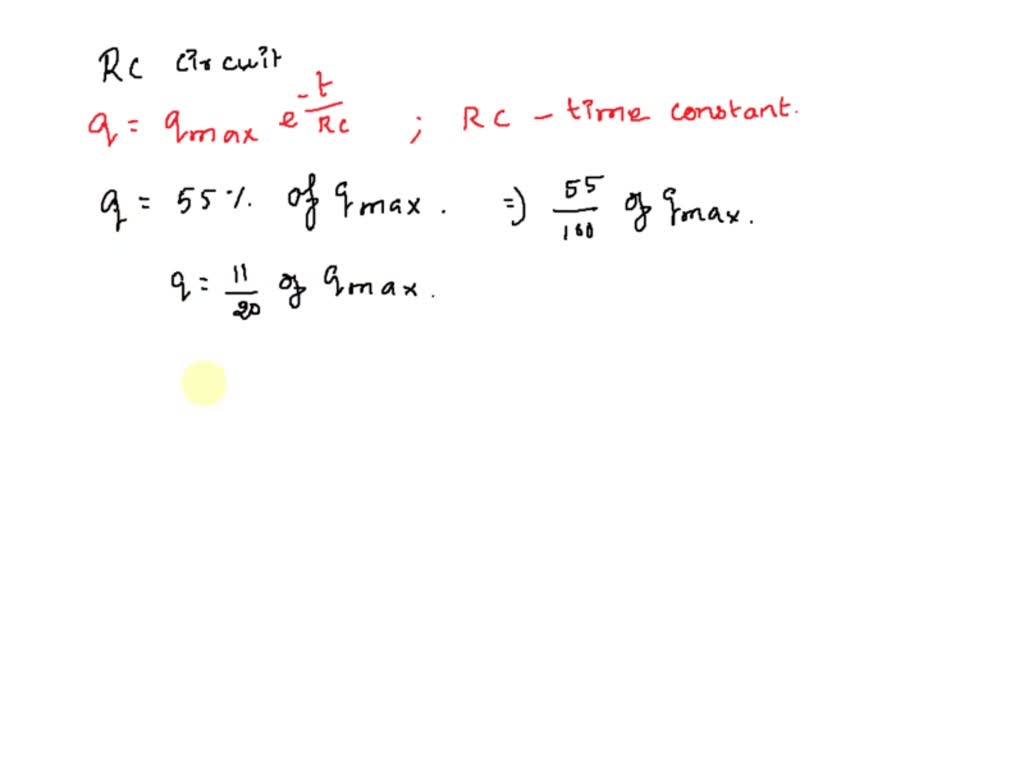 Rc circuit
q = qmax e^(-t/RC) ; RC - time constant.
q = 55% of qmax. => 55/100 of qmax.
q = 11/20 of qmax.